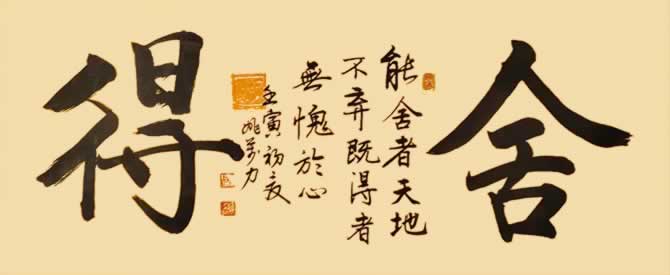 舍
能舍者天地
不弃既得者
無愧於心
壬寅初夏
姚萬力
得